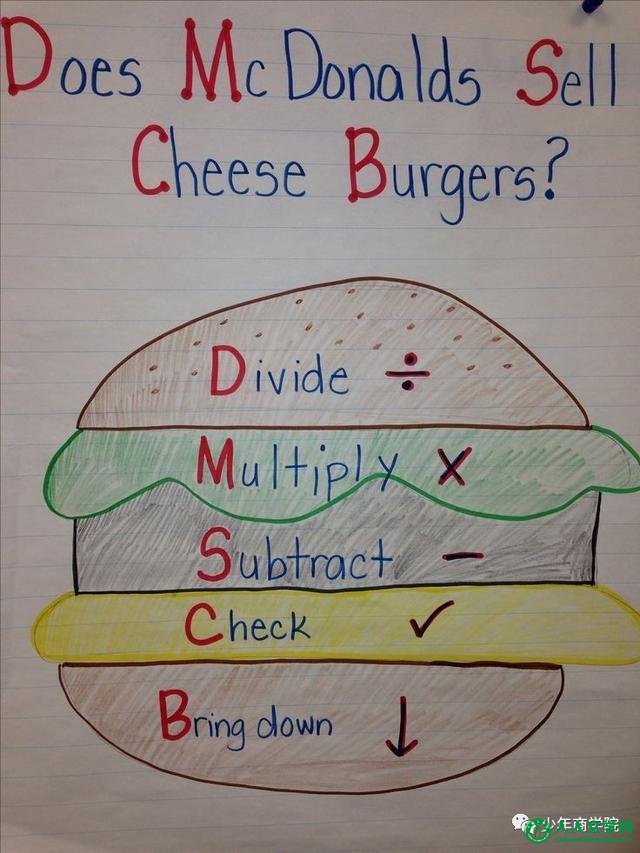 Does McDonalds Sell
Cheese Burgers?
Divide ÷
Multiply x
Subtract -
Check ✓
Bring down ↓
少年商学院